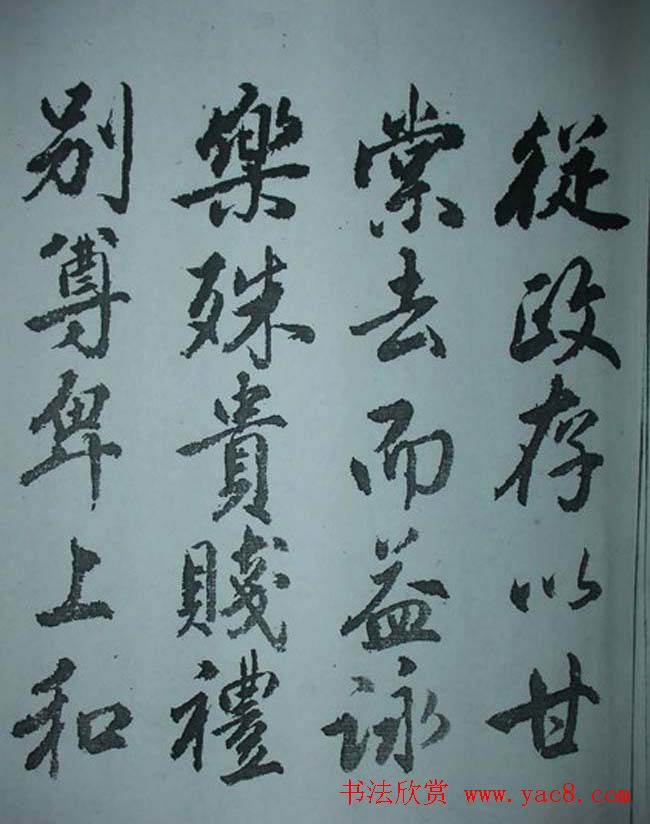 從政存以甘
棠去而益詠
樂殊貴賤禮
别尊卑上和
书法欣赏 www.yac8.com